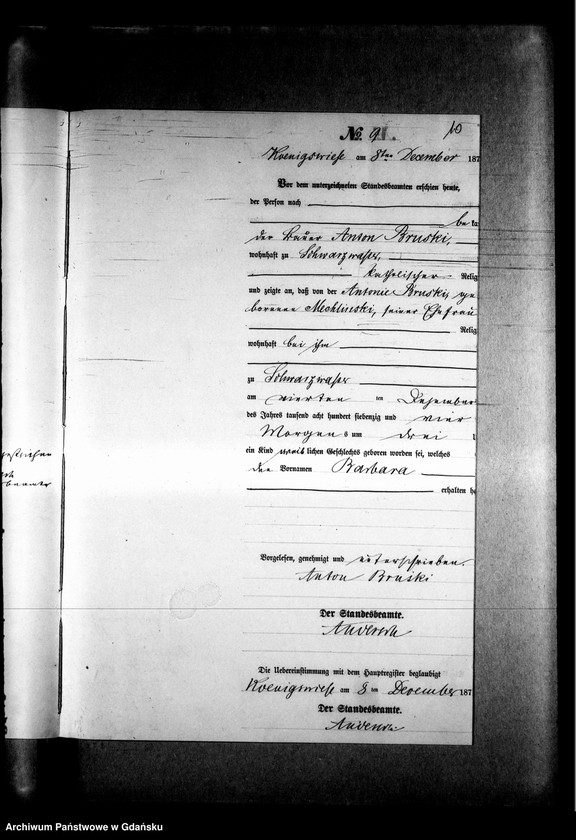 10
No 9.
Koenigswiese am 8ten December 187
Vor dem unterzeichneten Standesbeamten erschien heute,
der Person nach
be ka
der Bauer Anton Bruski,
wohnhaft zu Schwarzwasser,
katholischer Relig
und zeigte an, daß von der Antonie Bruski, ge
borenen Mechlinski, seiner Ehefrau
Relig
wohnhaft bei ihm
zu Schwarzwasser
am vierten ten Dezember
des Jahres tausend acht hundert siebenzig und vier
Morgens um drei
ein Kind weiblichen Geschlechts geboren worden sei, welches
den Vornamen Barbara
erhalten ha
Vorgelesen, genehmigt und unterschrieben.
Anton Bruski
Der Standesbeamte.
Die Uebereinstimmung mit dem Hauptregister beglaubigt
Koenigswiese am 8 ten December 187
Der Standesbeamte.
Archiwum Państwowe w Gdańsku